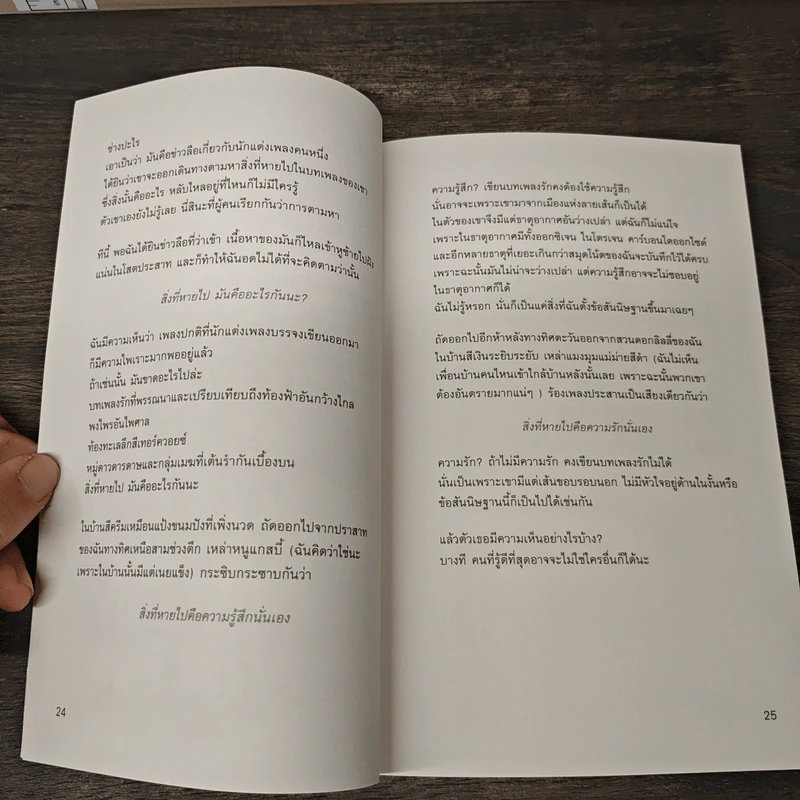 ช่างปะไร
เอาเป็นว่า มันคือข่าวลือเกี่ยวกับนักแต่งเพลงคนหนึ่ง
ได้ยินว่าเขาจะออกเดินทางตามหาสิ่งที่หายไปในบทเพลงของเขา
ซึ่งสิ่งนั้นคืออะไร หลับใหลอยู่ที่ไหนก็ไม่มีใครรู้
ตัวเขาเองยังไม่รู้เลย นี่สินะที่ผู้คนเรียกกันว่าการตามหา
ทีนี้ พอฉันได้ยินข่าวลือที่ว่าเข้า เนื้อหาของมันก็ไหลเข้าหูซ้ายไปฝัง
แน่นในโสตประสาท และก็ทำให้ฉันอดไม่ได้ที่จะคิดตามว่านั้น
สิ่งที่หายไป มันคืออะไรกันนะ?
ฉันมีความเห็นว่า เพลงปกติที่นักแต่งเพลงบรรจงเขียนออกมา
ก็มีความไพเราะมากพออยู่แล้ว
ถ้าเช่นนั้น มันขาดอะไรไปล่ะ
บทเพลงรักที่พรรณนาและเปรียบเทียบถึงท้องฟ้าอันกว้างไกล
พงไพรอันไพศาล
ท้องทะเลลึกสีเทอร์ควอยซ์
หมู่ดาวดารดาษและกลุ่มเมฆที่เต้นรำกันเบื้องบน
สิ่งที่หายไป มันคืออะไรกันนะ
ในบ้านสีครีมเหมือนแป้งขนมปังที่เพิ่งนวด ถัดออกไปจากปราสาท
ของฉันทางทิศเหนือสามช่วงตึก เหล่าหนูแกสบี้ (ฉันคิดว่าใช่นะ
เพราะในบ้านนั้นมีแต่เนยแข็ง) กระซิบกระซาบกันว่า
สิ่งที่หายไปคือความรู้สึกนั่นเอง
24
ความรู้สึก? เขียนบทเพลงรักคงต้องใช้ความรู้สึก
นั่นอาจจะเพราะเขามาจากเมืองแห่งลายเส้นก็เป็นได้
ในตัวของเขาจึงมีแต่ธาตุอากาศอันว่างเปล่า แต่ฉันก็ไม่แน่ใจ
เพราะในธาตุอากาศมีทั้งออกซิเจน ไนโตรเจน คาร์บอนไดออกไซด์
และอีกหลายธาตุที่เยอะเกินกว่าสมุดโน้ตของฉันจะบันทึกไว้ได้ครบ
เพราะฉะนั้นมันไม่น่าจะว่างเปล่า แต่ความรู้สึกอาจจะไม่ชอบอยู่
ในธาตุอากาศก็ได้
ฉันไม่รู้หรอก นั่นก็เป็นแค่สิ่งที่ฉันตั้งข้อสันนิษฐานขึ้นมาเฉยๆ
ถัดออกไปอีกห้าหลังทางทิศตะวันออกจากสวนดอกลิลลี่ของฉัน
ในบ้านสีเงินระยิบระยับ เหล่าแมงมุมแม่ม่ายสีดำ (ฉันไม่เห็น
เพื่อนบ้านคนไหนเข้าใกล้บ้านหลังนั้นเลย เพราะฉะนั้นพวกเขา
ต้องอันตรายมากแน่ๆ ) ร้องเพลงประสานเป็นเสียงเดียวกันว่า
สิ่งที่หายไปคือความรักนั่นเอง
ความรัก? ถ้าไม่มีความรัก คงเขียนบทเพลงรักไม่ได้
นั่นเป็นเพราะเขามีแต่เส้นขอบรอบนอก ไม่มีหัวใจอยู่ด้านในงั้นหรือ
ข้อสันนิษฐานนี้ก็เป็นไปได้เช่นกัน
แล้วตัวเธอมีความเห็นอย่างไรบ้าง?
บางที คนที่รู้ดีที่สุดอาจจะไม่ใช่ใครอื่นก็ได้นะ
25